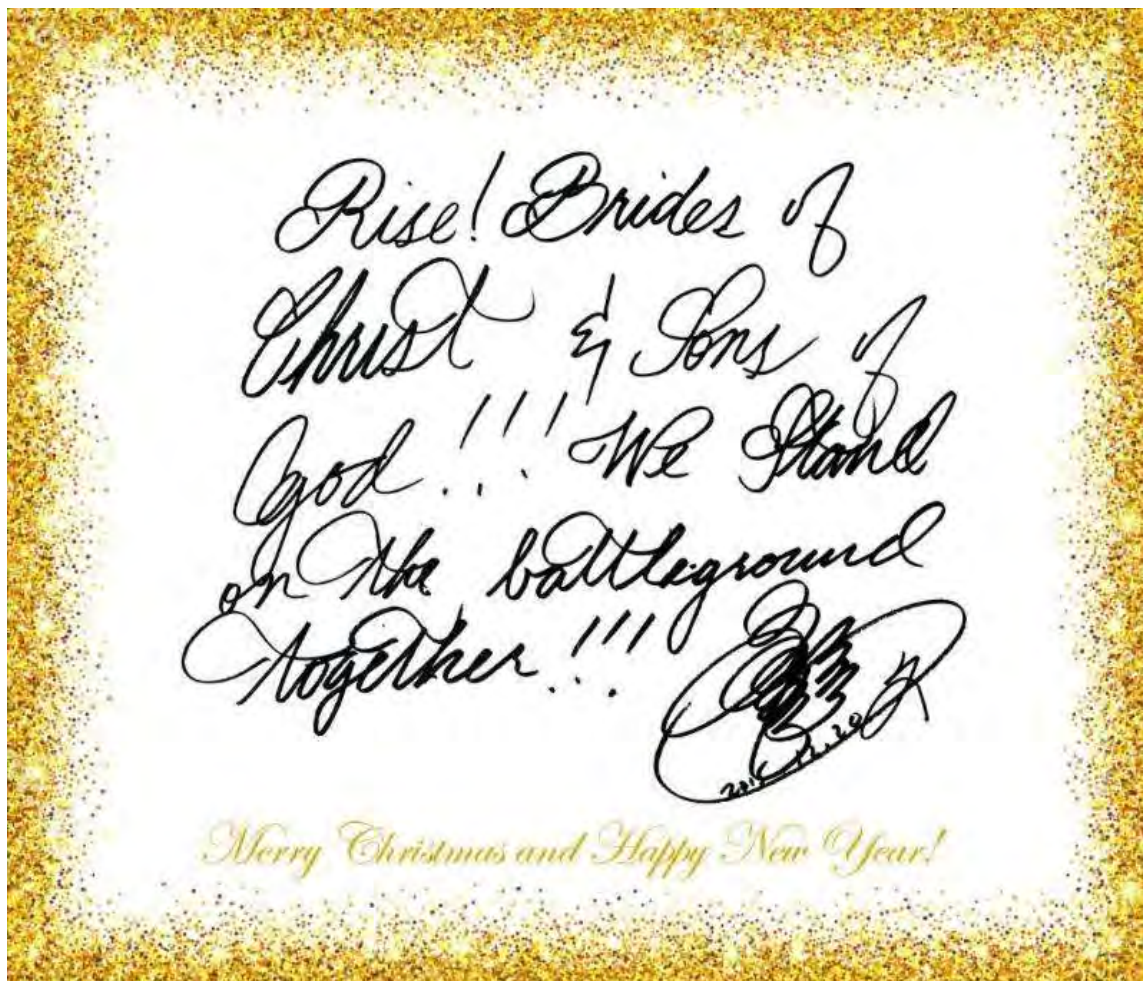 Rise! Brides of
Christ & Sons of
God!!! We Stand
on the battleground
together!!!
Merry Christmas and Happy New Year!